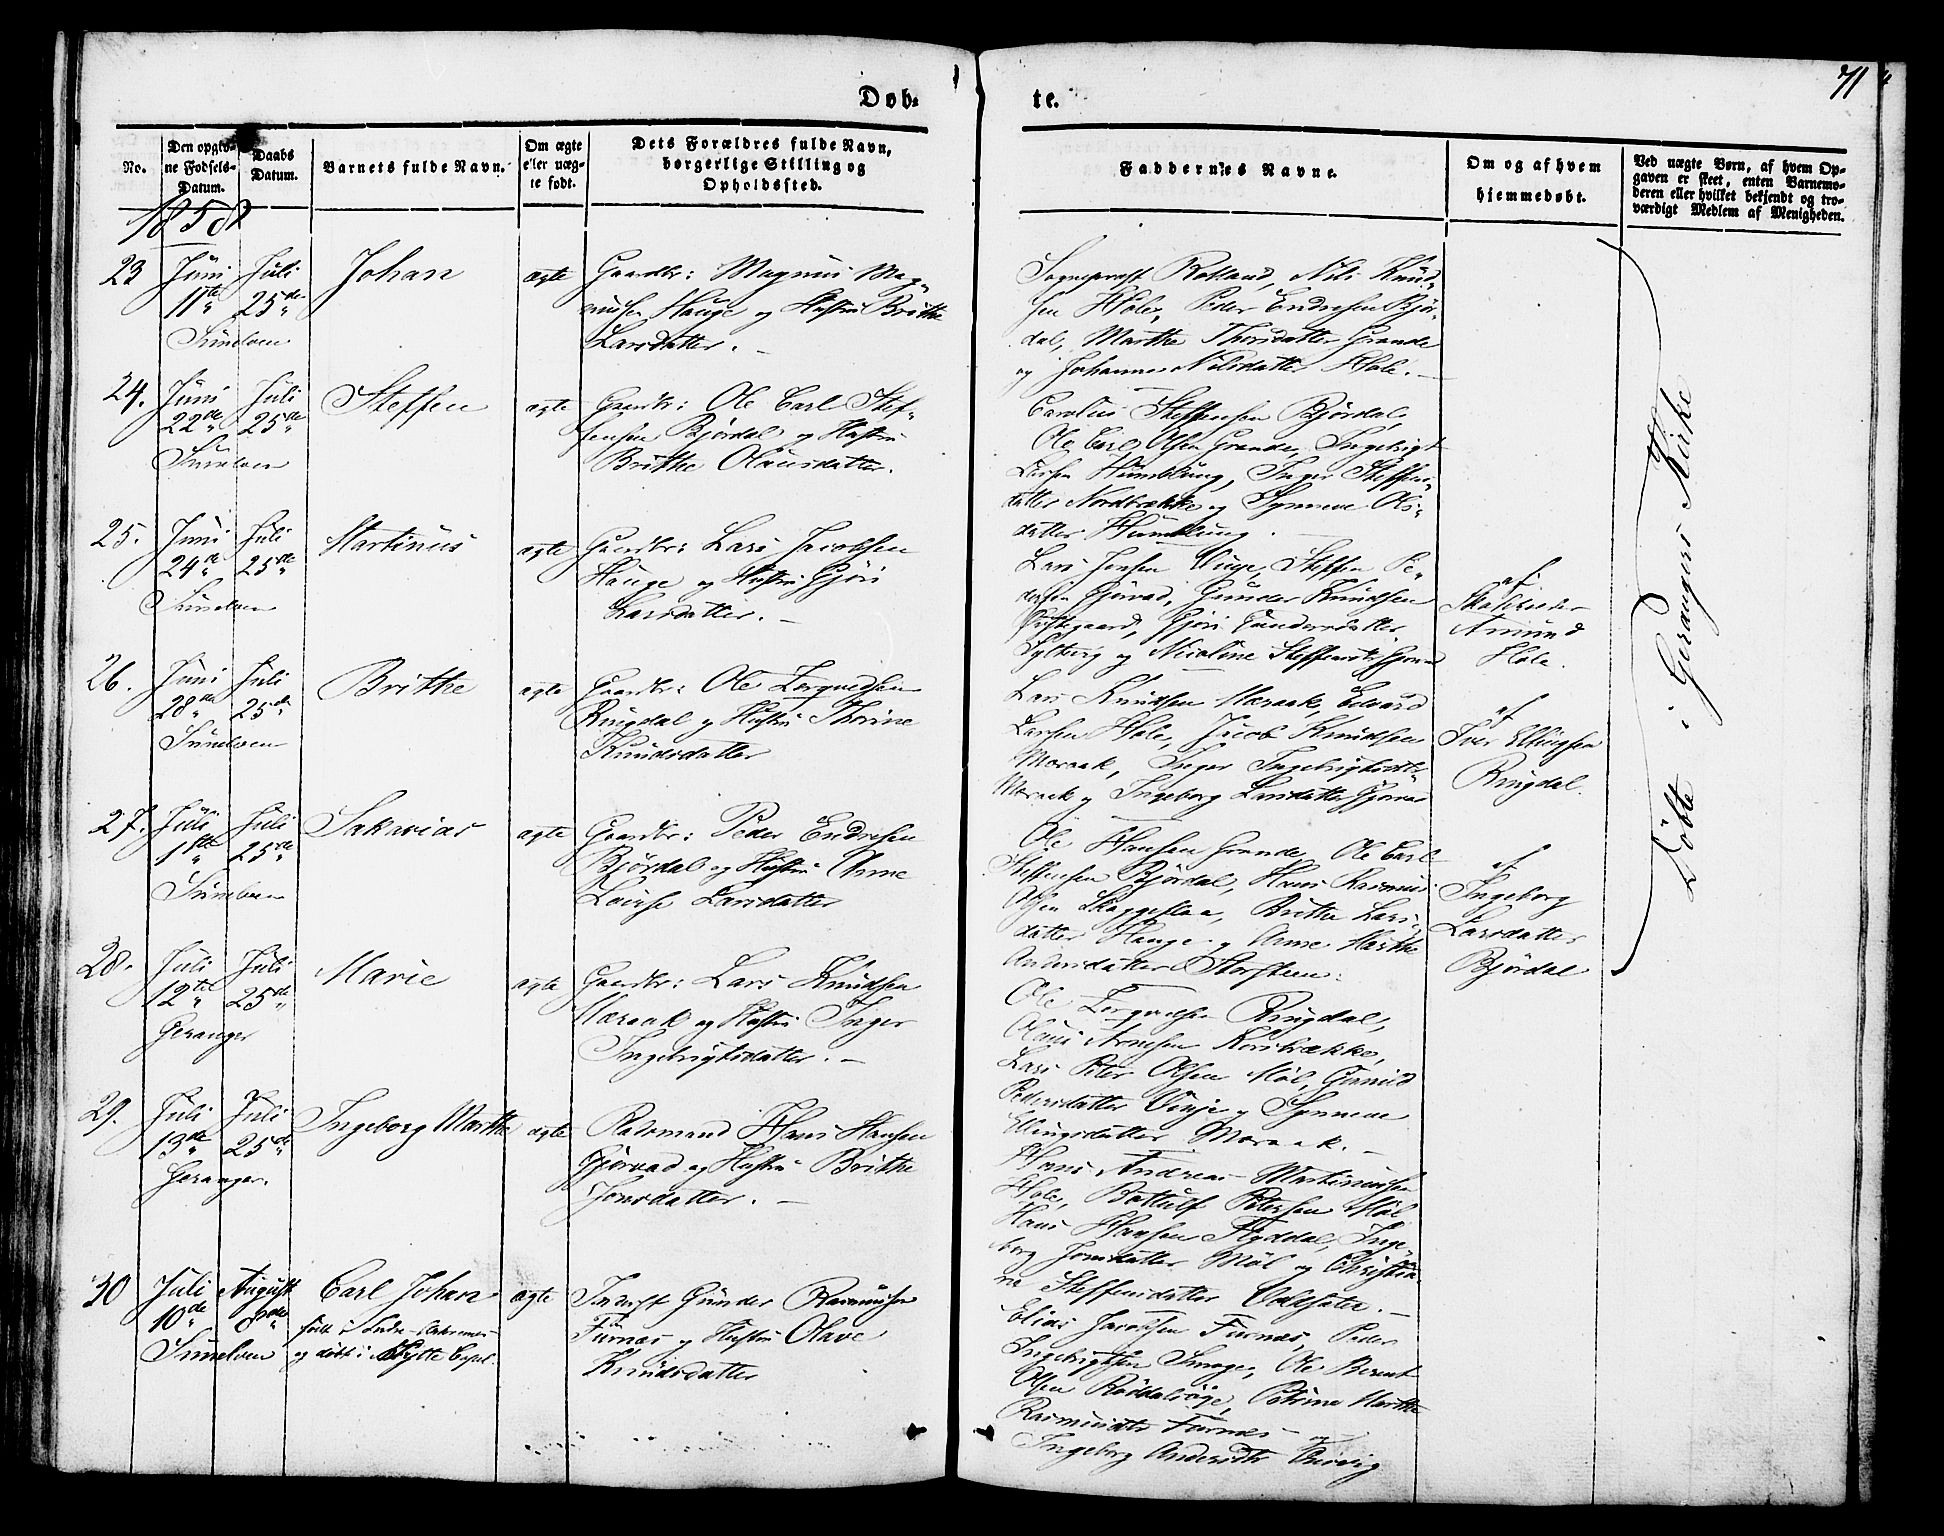 Døb-
te.
71
No.
Den opgiv-
ne Fødsels-
Datum.
Daabs
Datum.
Barnets fulde Navn.
Om ægte
eller uæg-
te født.
Dets Forældres fulde Navn,
borgerlige Stilling og
Opholdssted.
Faddernes Navne.
Om og af hvem
hjemmedøbt.
Ved uægte Børn, af hvem Op-
gaven er skeet, enten Barnemo-
deren eller hvilket bekjendt og tro-
værdigt Medlem af Menigheden.
1858
23
Juni
11te
Sunelven
Juli
25de
Johan
ægte
Gaardbr: Magnus Mag-
nusen Hauge og Hustru Brithe
Larsdatter. -
Sognepræst Rolland, Nils Knud-
sen Hole, Peder Endresen Bjør-
dal, Marthe Thorsdatter Grande
og Johanne Nilsdatter Hole. -
24.
Juni
22de
Sunelven
Juli
25de
Steffen
ægte
Gaardbr: Ole Carl Stef-
fensen Bjørdal og Hustru
Brithe Olausdatter.
Carolus Steffensen Bjørdal,
Ole Carl Olsen Grande, Ingebrigt
Humblung, Inger Steffens-
datter Nordbække og Synneve Ols-
datter Humblung. -
25.
Juni
24de
Sunelven
Juli
25de
Martinus
ægte
Gaardbr: Lars Jacobsen
Hauge og Hustru Gjøri
Larsdatter. -
Lars Jensen Steffen Pe-
dersen Gjørvad, Gunder Knudsen
Gjøri Gundersdatter
Sylteberg og Nicoline Steffensdtr
af
Skoleholder
Amund
Hole.
26.
Juni
28de
Sunelven
Juli
25de
Brithe
ægte
Gaardbr: Ole Torqvedsen
Ringdal og Hustru Thorine
Knudsdatter
Lars Knudsen Meraak, Edvard
Larsen Hole, Jacob Knudsen
Meraak, Inger Ingebrigtsdtr
Meraak og Ingeborg Larsdatter Gjørvad
af
Iver Ellingsen
Ringdal.
27.
Juli
1ste
Sunelven
Juli
25de
Sakarias
ægte
Gaardbr: Peder Endresen
Bjørdal og Hustru Anne
Lovise Larsdatter
Ole Hansen Grande, Ole Carl
Steffensen Bjørdal, Hans Rasmus
Olsen Skaggeflaa, Brithe Lars-
datter Hauge og Anne Marthe
Andersdatter Storsteen.
af
Ingeborg
Larsdatter
Bjørdal
28.
Juli
12te
Geranger
Juli
25de
Marie
ægte
Gaardbr: Lars Knudsen
Meraak og Hustru Inger
Ingebrigtsdatter. -
Ole Torqvedsen Ringdal,
Olaus Arnesen Korsbrække,
Lars Peter Olsen Møl, Gunnild
Pedersdatter Vinje og Synneve
Ellingsdatter Meraak. -
29.
Juli
13de
Geranger.
Juli
25de
Ingeborg Marthe
ægte
Radsmand Hans Hansen
Gjørvad og Hustru Brithe
Jonsdatter. -
Hans Andreas Martinusen
Hole, Bottulf Petersen Møl
Hans Hansen Flyddal, Inge-
borg Jonsdatter Møl og Christia-
ne Steffensdatter Ødesæter. -
30
Juli
10de
Sunelven
August
8de
Carl Johan
født i Indre
og døbt i Sylte Capel.
ægte
Inderst Gunder Rasmusen
Furnæs og Hustru Olave
Knudsdatter
Elias Jacobsen Furnæs, Peder
Ingebrigtsen Smoge, Ole Berent
Olsen Røddalsøge, Petrine Marthe
Rasmusdtr Furnæs og
Ingeborg Andersdtr
Døbte i Gerangers Kirke